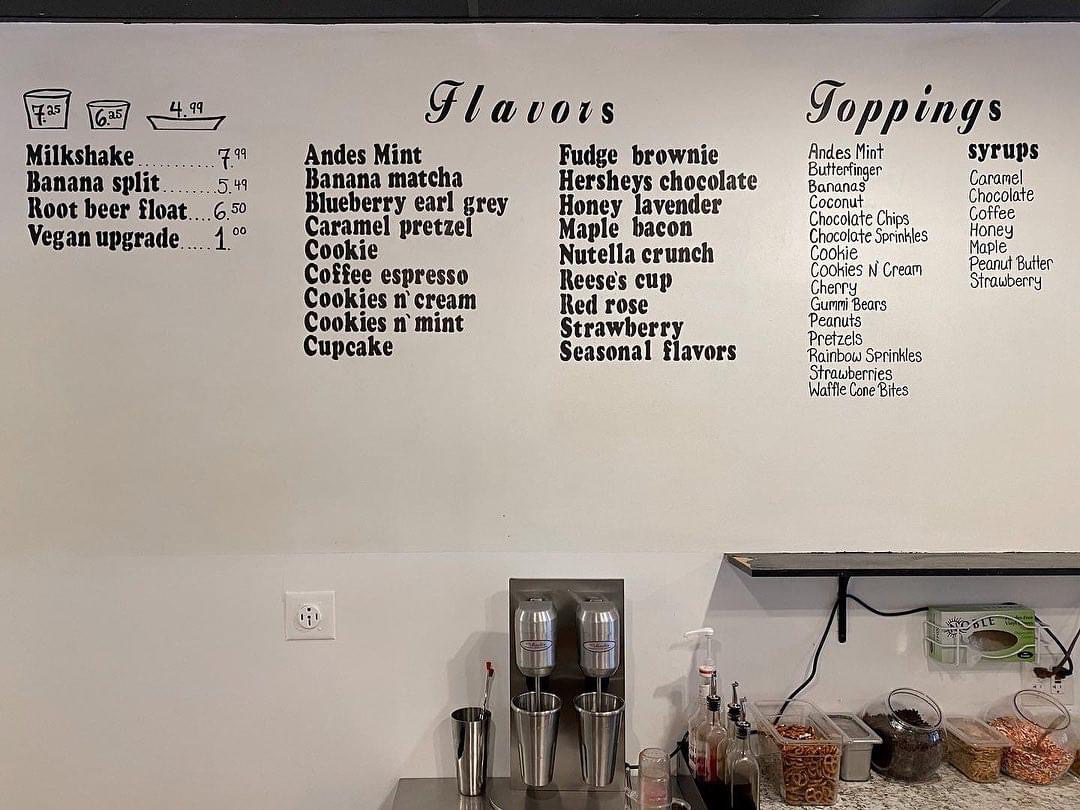 7.25 6.25 4.99
Milkshake...........7.99
Banana split........5.49
Root beer float....6.50
Vegan upgrade.....1.00
Flavors
Andes Mint
Banana matcha
Blueberry earl grey
Caramel pretzel
Cookie
Coffee espresso
Cookies n' cream
Cookies n' mint
Cupcake
Fudge brownie
Hersheys chocolate
Honey lavender
Maple bacon
Nutella crunch
Reese's cup
Red rose
Strawberry
Seasonal flavors
Toppings
Andes Mint
Butterfinger
Bananas
Coconut
Chocolate Chips
Chocolate Sprinkles
Cookie
Cookies N' Cream
Cherry
Gummi Bears
Peanuts
Pretzels
Rainbow Sprinkles
Strawberries
Waffle Cone Bites
syrups
Caramel
Chocolate
Coffee
Honey
Maple
Peanut Butter
Strawberry
NOBLE